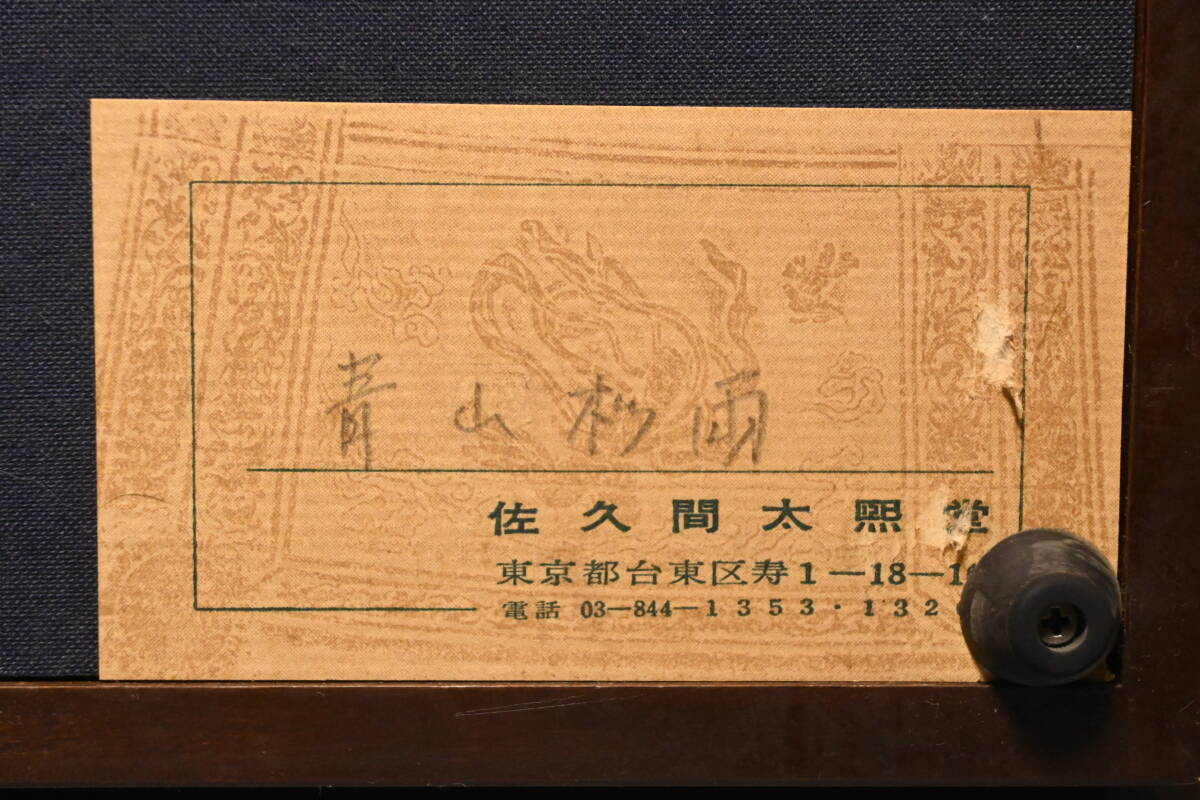 青山杉雨
佐久間太熙堂
東京都台東区寿1―18―1
電話 03―844―1353・132